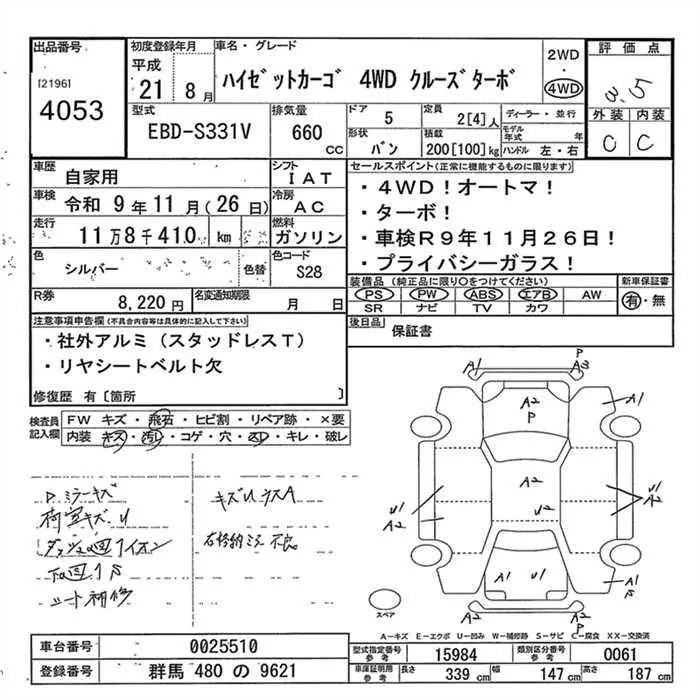 出品番号 初度登録年月 車名・グレード 2WD 評価点
[2196] 平成 ・
4053 21 8月 ハイゼットカーゴ 4WD クルーズターボ 4WD 3.5
型式 排気量 ドア 5 定員 2[4]人 ディーラー・並行 外装 内装
EBD-S331V 660 CC 形状 バン 積載 200[100]kg モデル年式 年 ハンドル 左・右 C C
車歴 自家用 シフト IAT セールスポイント(正常に機能するものに限ります)
車検 令和 9年11月(26日) 冷房 AC ・4WD!オートマ!
走行 11万8千410 km 燃料 ガソリン ・ターボ!
・車検R9年11月26日!
色 シルバー 色替 色コード S28 ・プライバシーガラス!
R券 8,220円 名変通知期限 月 日 装備品(純正品に限り○をつけてください) 新車保証書
PS PW ABS エアB AW 有・無
SR ナビ TV カワ
注意事項申告欄(不具合内容等は具体的に記入して下さい) 後日品 保証書
・社外アルミ(スタッドレスT)
・リヤシートベルト欠
修復歴 有〔箇所 〕
検査員記入欄 FW キズ・飛石・ヒビ割・リペア跡・×要
内装 キズ・汚レ・コゲ・穴・スレ・キレ・破レ
ミラーキズ キズUタスA
荷室キズU
シート補修
A1 P A3
A2 P A1
A2
U1 A2 U2 U1 A2
A1 U1 A1 S
A2
スペア
A-キズ E-エクボ U-凹み W-補修跡 S-サビ C-腐食 XX-交換済
車台番号 0025510 型式指定番号 参考 15984 類別区分番号 参考 0061
登録番号 群馬 480 の 9621 車庫証明用 参考 長さ 339 cm 幅 147 cm 高さ 187 cm